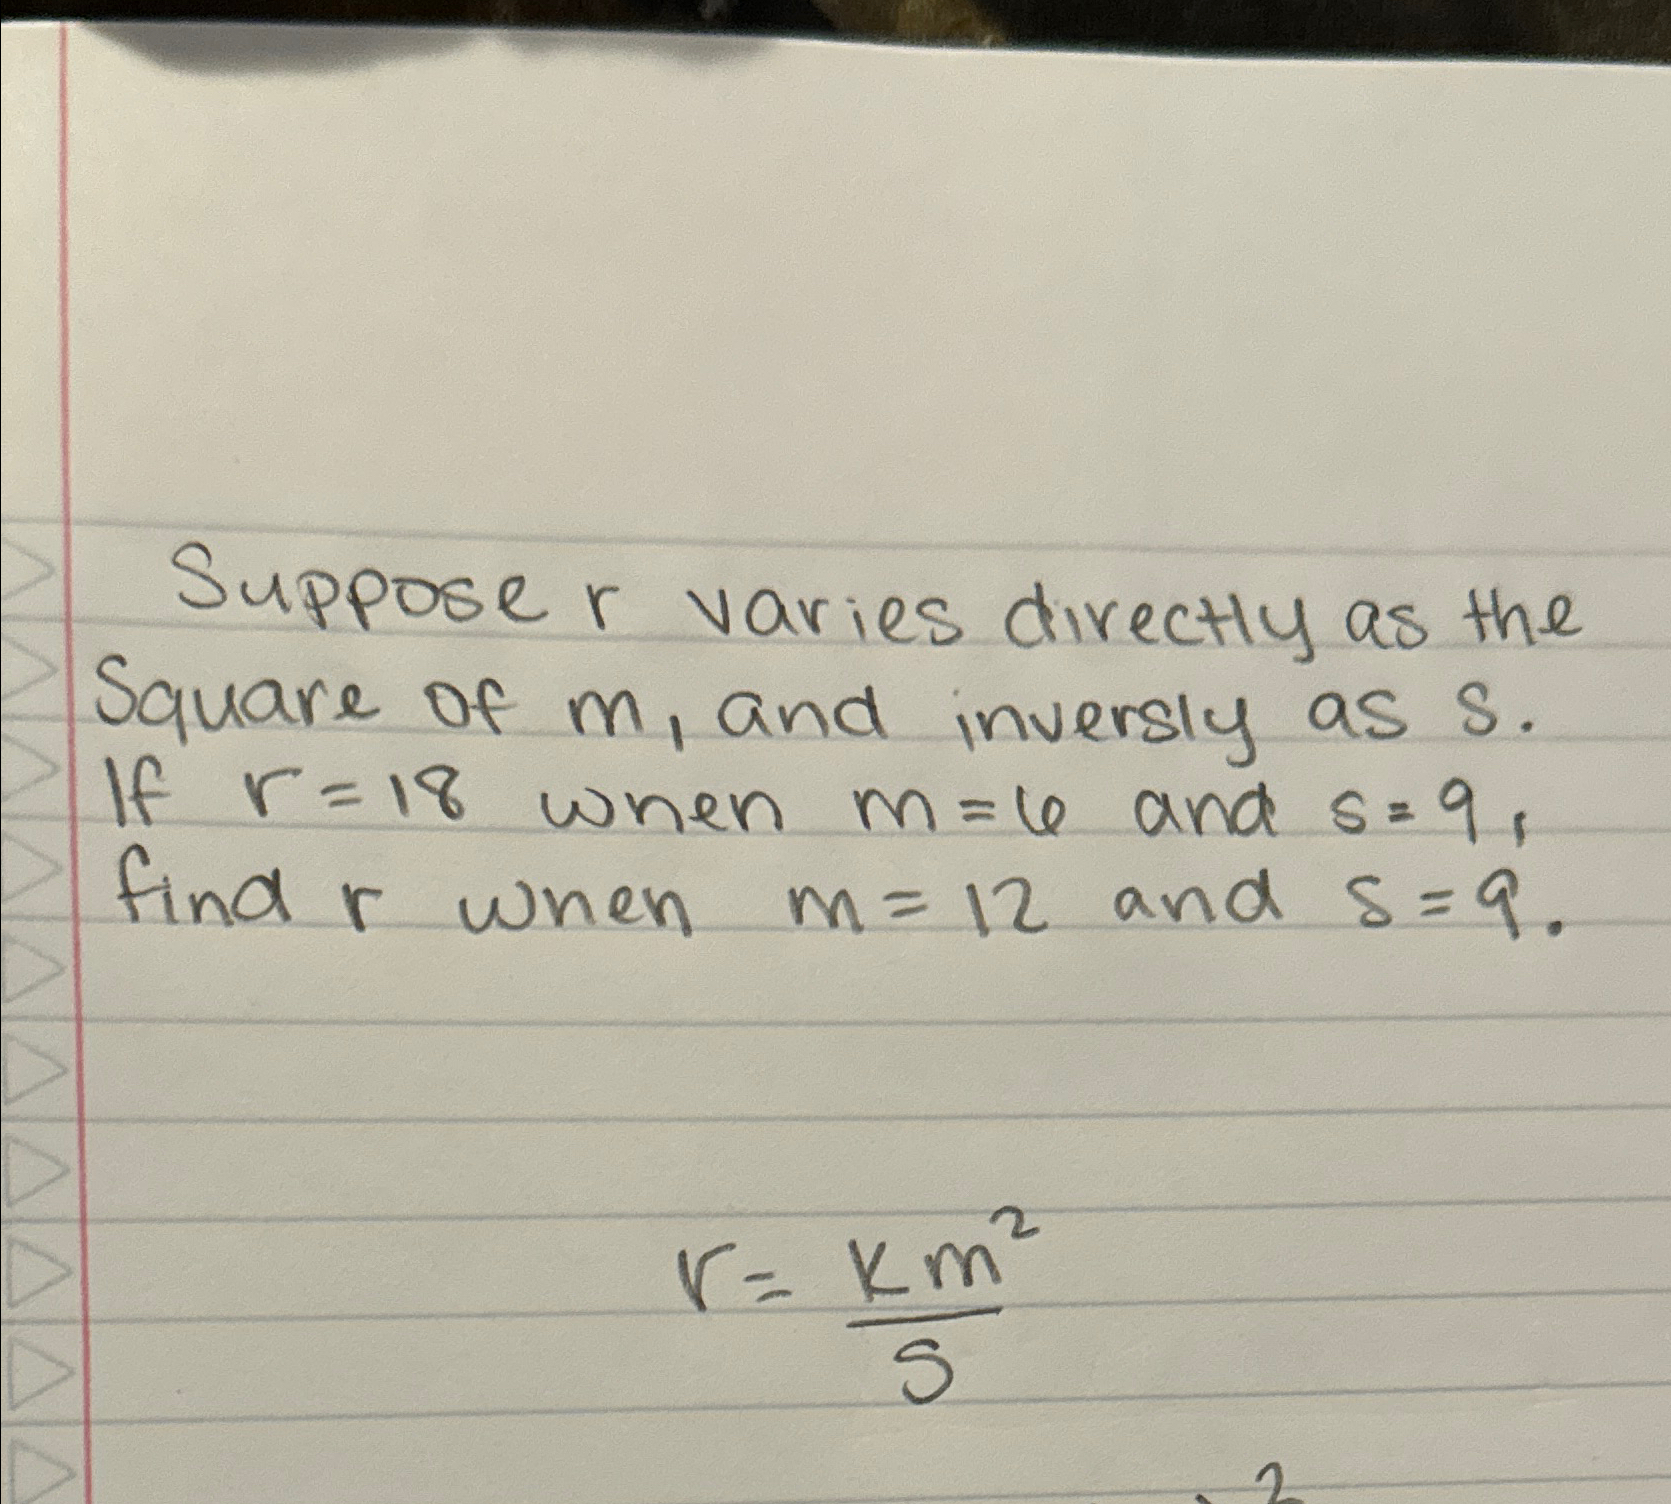 Suppose r varies directly as the
Square of m, and inversly as s.
If r = 18 when m = 6 and s = 9,
find r when m = 12 and s = 9.
r = km²
s
2